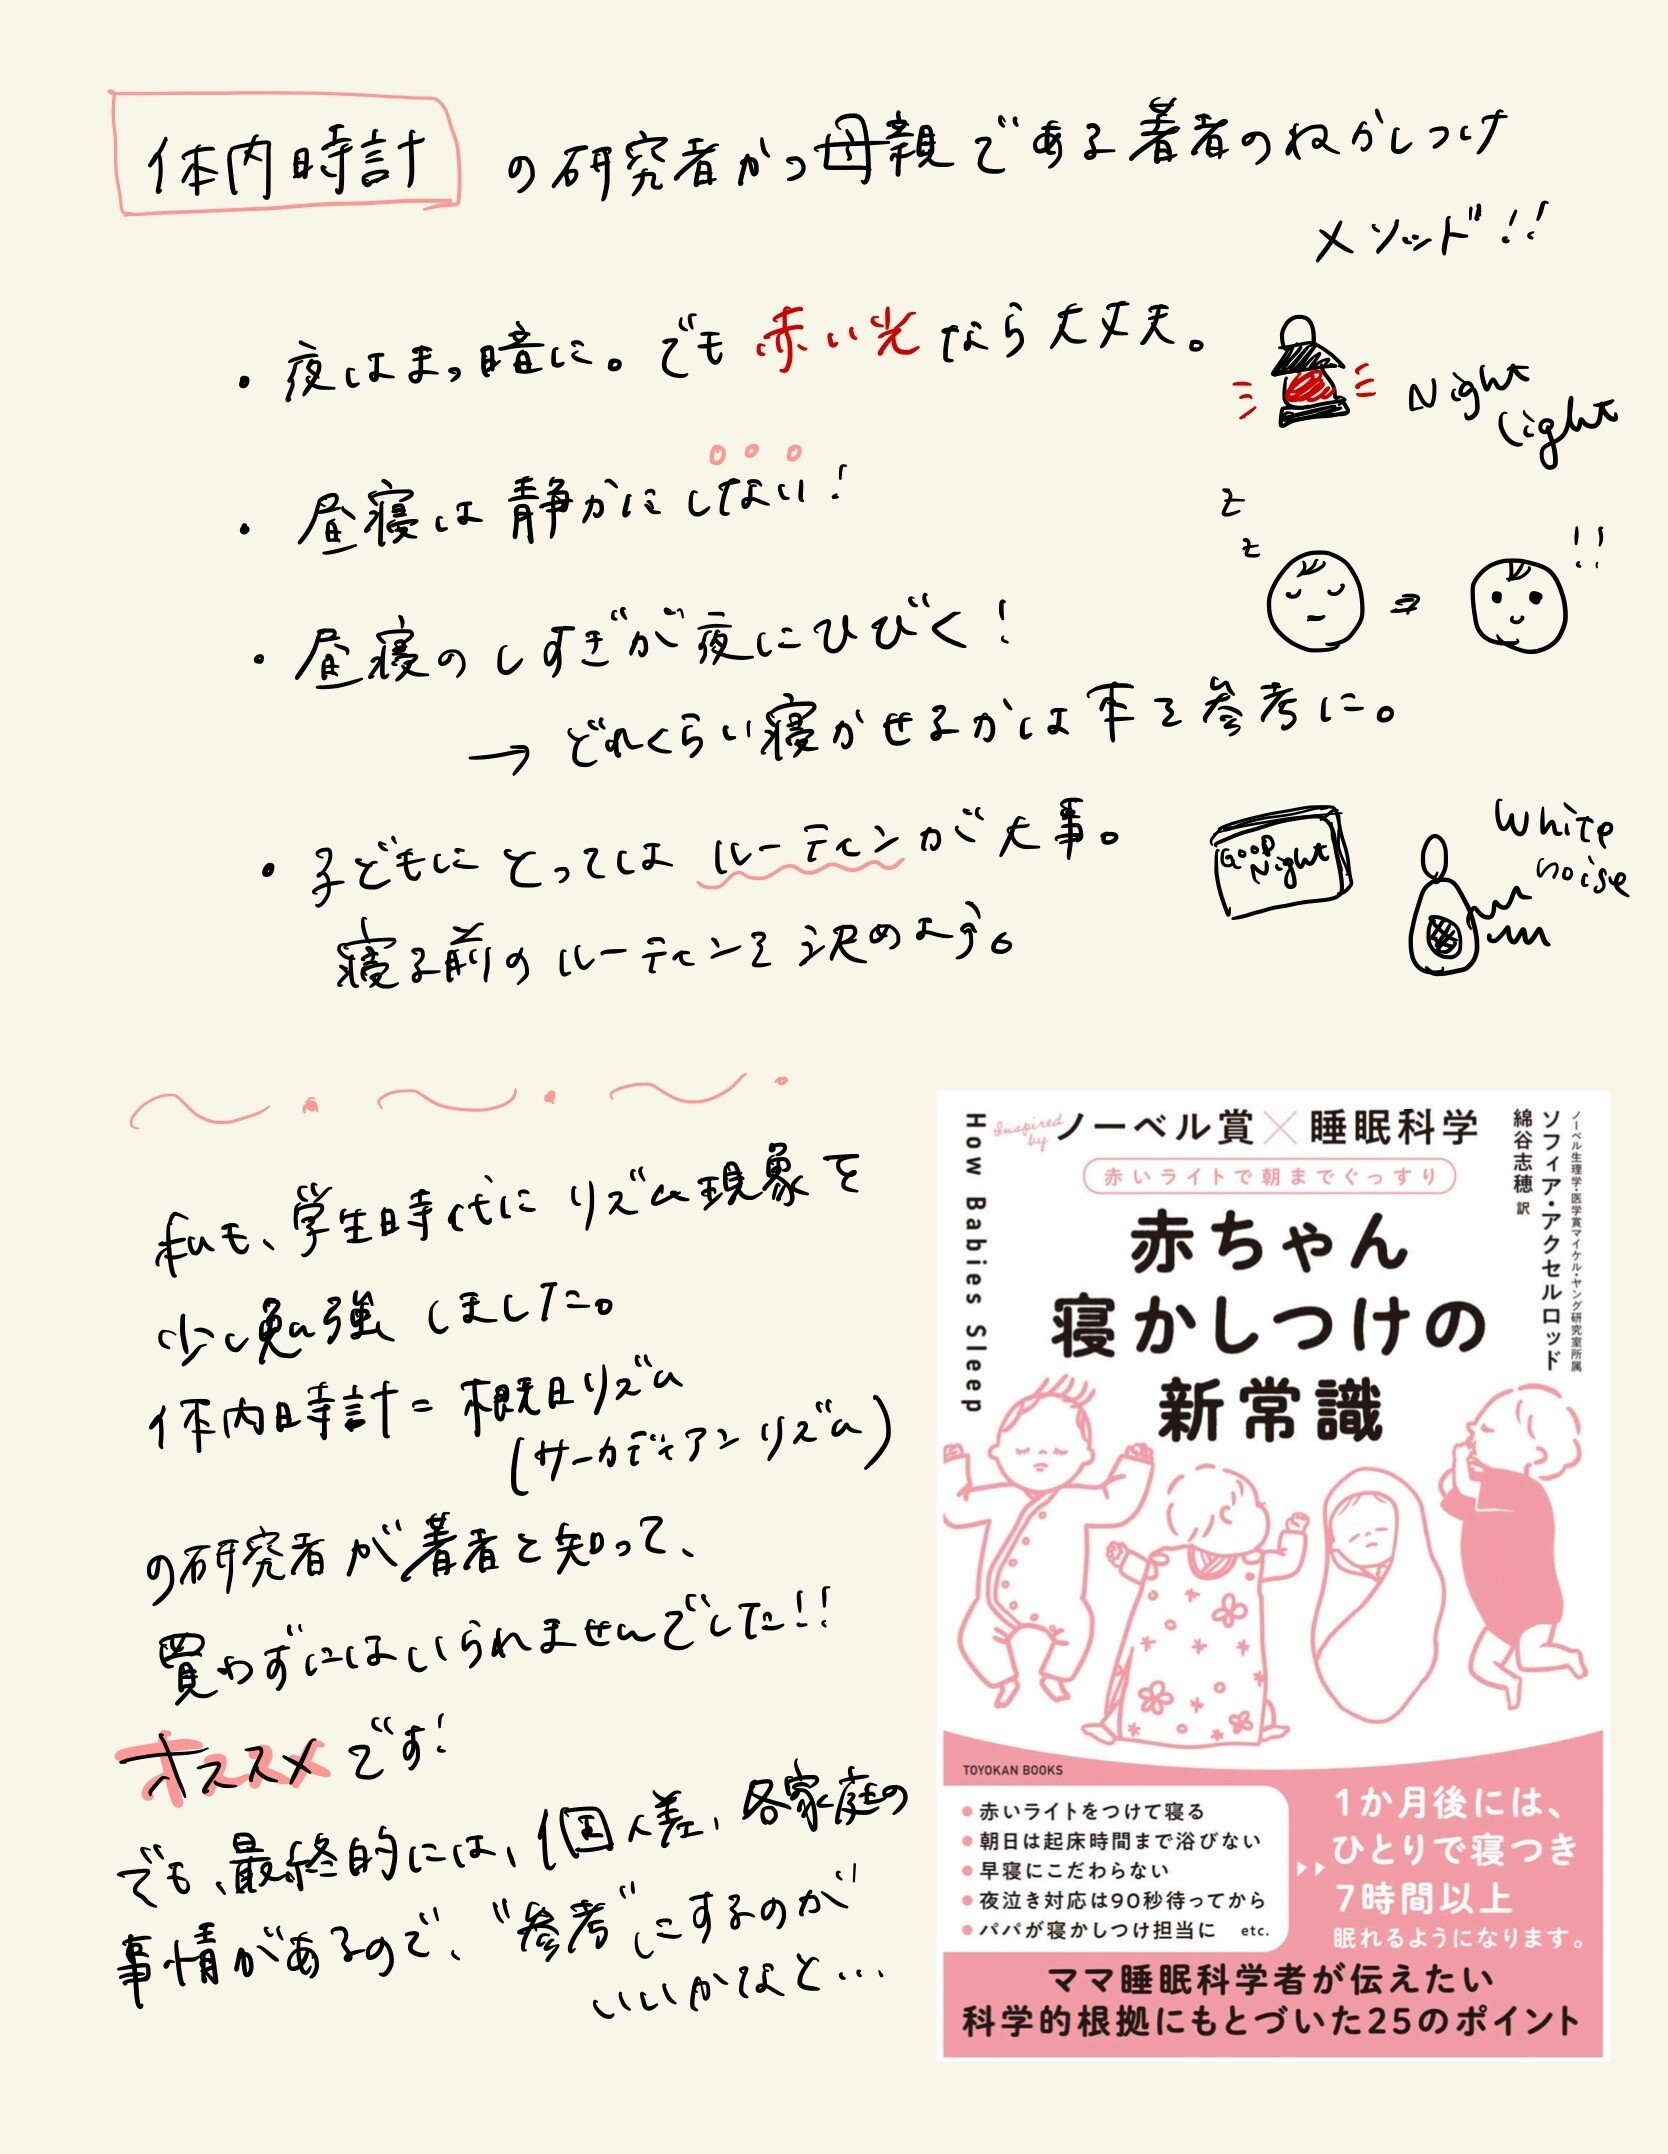 体内時計の研究者かつ母親である著者のねかしつけ
メソッド!!
・夜はまっ暗に。でも赤い光なら大丈夫。
Night
Light
・昼寝は静かにしない!
z
z
!!
・昼寝のしすぎが夜にひびく!
→どれくらい寝かせるかは本を参考に。
・子どもにとってはルーティンが大事。
寝る前のルーティンを決めよう。
GOOD
Night
White
noise
私も、学生時代にリズム現象を
少し勉強しました。
体内時計=概日リズム
(サーカディアンリズム)
の研究者が著者と知って、
買わずにはいられませんでした!!
オススメです!
でも、最終的には、個人差、各家庭の
事情があるので、"参考"にするのが
いいかなと…
How Babies Sleep
Inspired by
ノーベル賞×睡眠科学
赤いライトで朝までぐっすり
赤ちゃん
寝かしつけの
新常識
ノーベル生理学・医学賞マイケル・ヤング研究室所属
ソフィア・アクセルロッド
綿谷志穂 訳
TOYOKAN BOOKS
●赤いライトをつけて寝る
●朝日は起床時間まで浴びない
●早寝にこだわらない
●夜泣き対応は90秒待ってから
●パパが寝かしつけ担当に etc.
1か月後には、
ひとりで寝つき
7時間以上
眠れるようになります。
ママ睡眠科学者が伝えたい
科学的根拠にもとづいた25のポイント